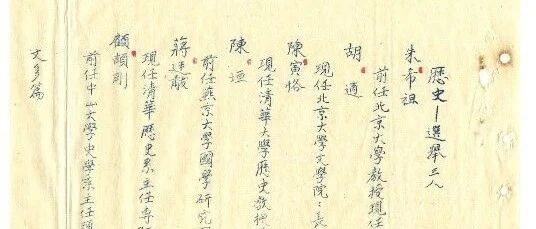 歷史－選舉三八
朱希祖
前任北京大學教授現任
胡適
現任北京大學文學院：長
陳寅恪
現任清華大學歷史教授
陳垣
前任燕京大學國學研究
蔣廷黻
現任清華歷史系主任專
顧頡剛
前任中山大學史學系主任
文多篇